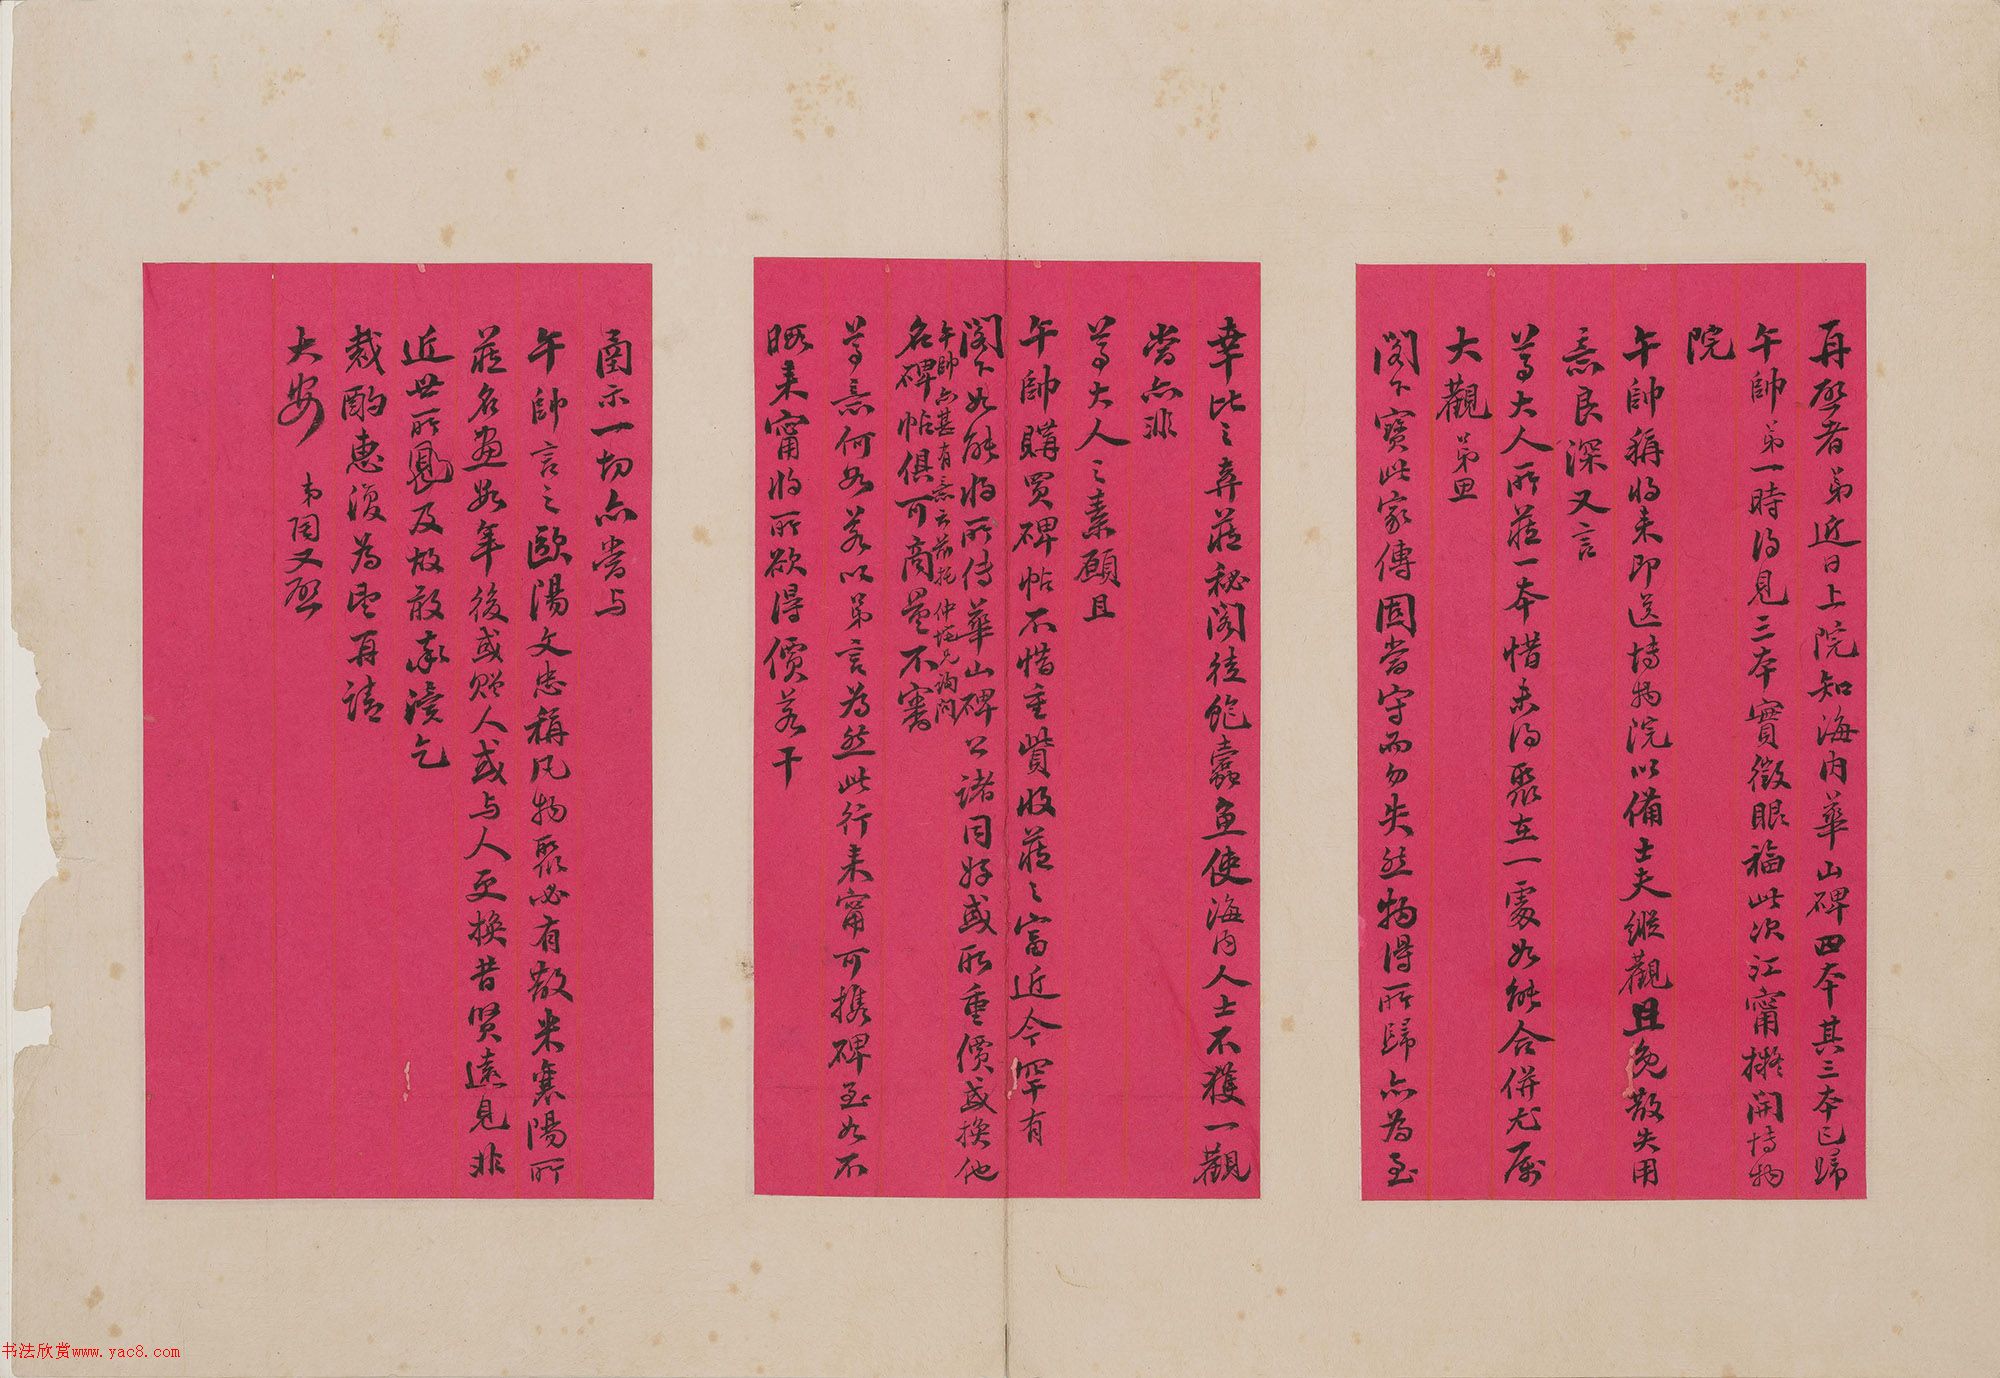 再啓者弟近日上院知海内華山碑四本其三本已歸
午帥弟一時得見三本實徵眼福此次江甯擬開博物
院
午帥稱將来即送博物院以備士夫縱觀且免散失用
意良深又言
尊大人所藏一本惜未得聚在一處如能合併尤属
大觀弟思
閣下寶此家傳固當守而勿失然物得所歸亦為至
幸比之弆藏秘閣徒飽蠹魚使海内人士不獲一觀
當亦非
尊大人之素願且
午帥購買碑帖不惜重貲收藏之富近今罕有
閣下如能將所傳華山碑公諸同好或酌重價或換他
名碑帖俱可商量不審
午帥亦甚有意云前托仲垞兄詢問
尊意何如若以弟言為然此行来甯可攜碑至如不
暇来甯將所欲得價若干
函示一切亦當与
午帥言之歐陽文忠稱凡物聚必有散米襄陽所
藏名畫数年後或贈人或与人更換昔賢遠見非
近世所夙及故敢奉瀆乞
裁酌惠復為盼再請
大安
弟周又啓
书法欣赏www.yac8.com